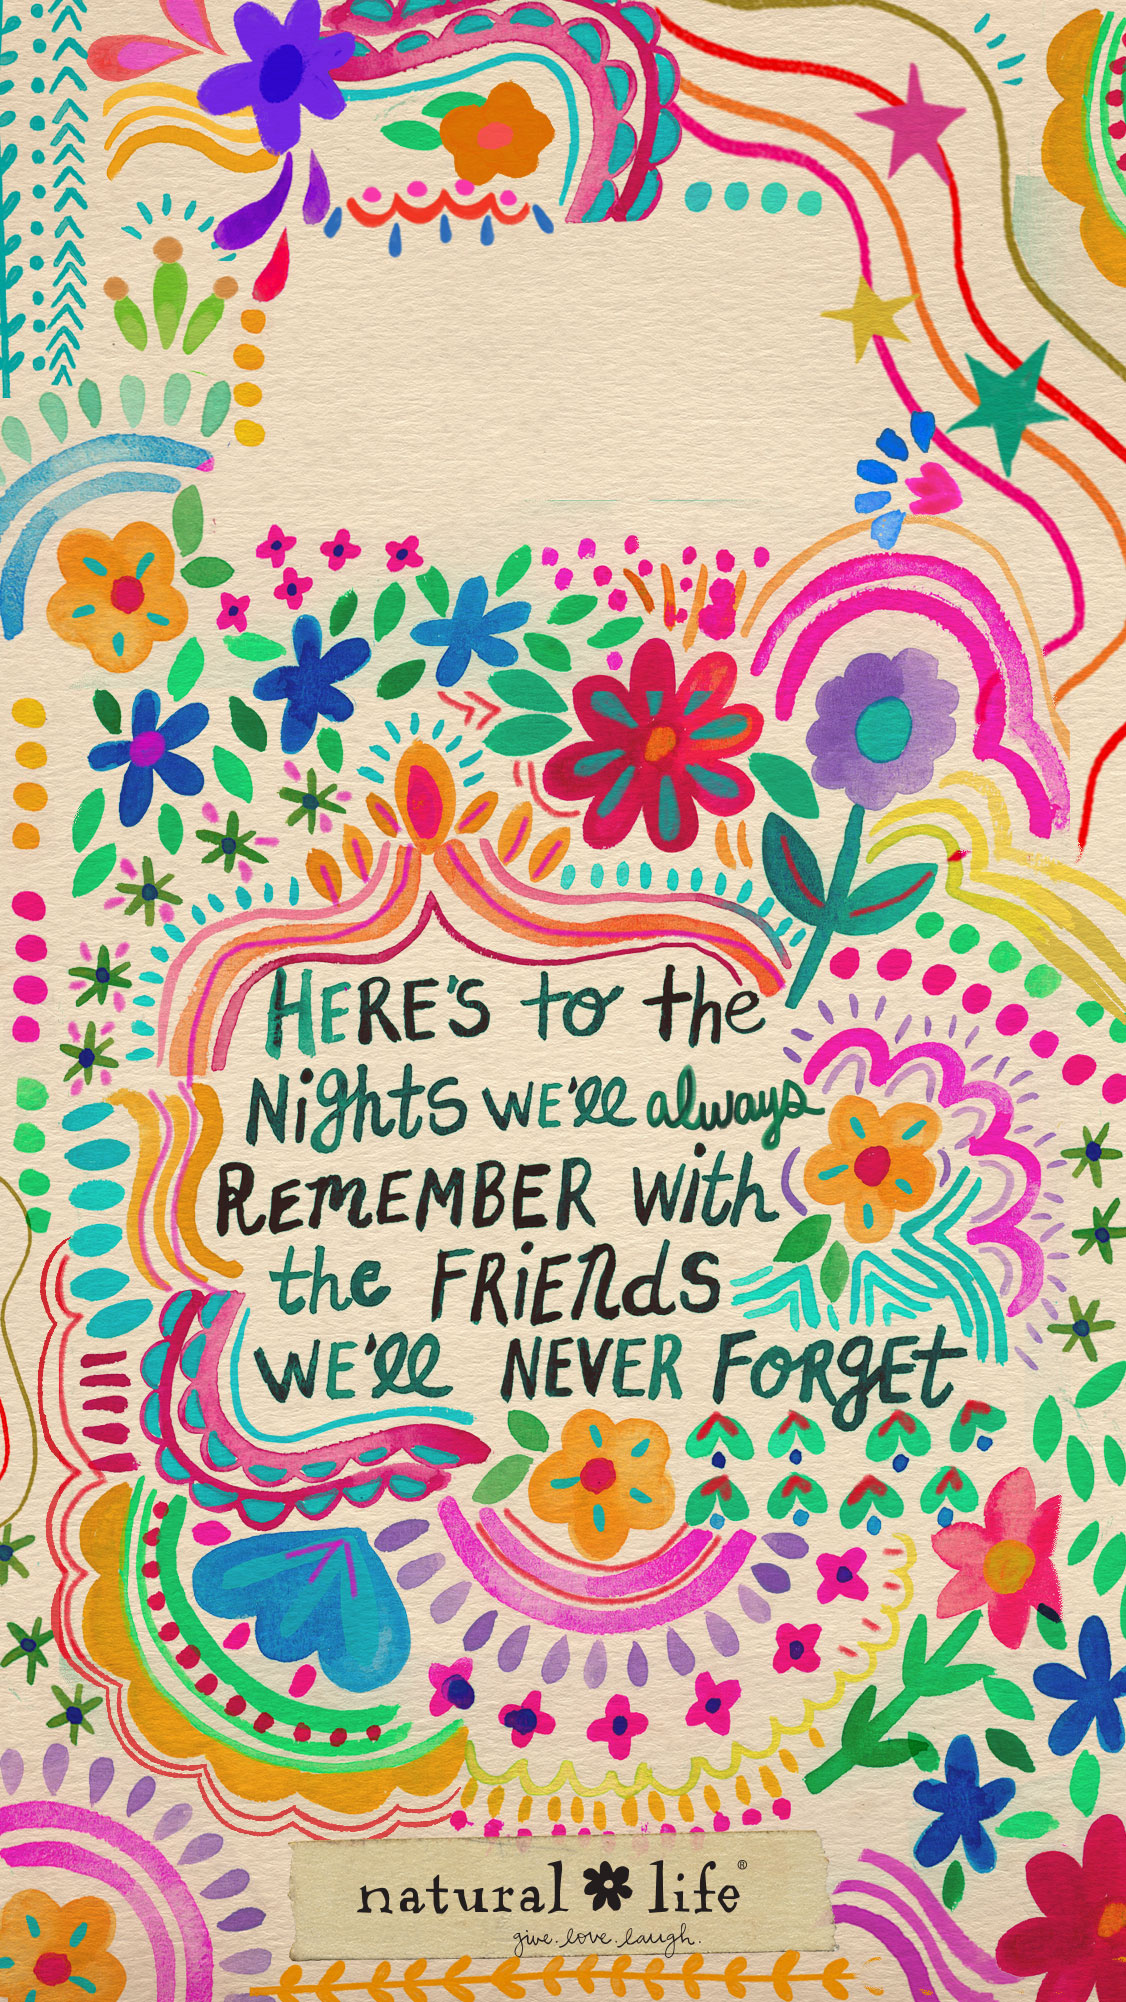 HERE'S to the
Nights WE'll always
REmEMBER With
the FRiENdS
WE'll NEVER FORgEt
natural life®
give.love.laugh.